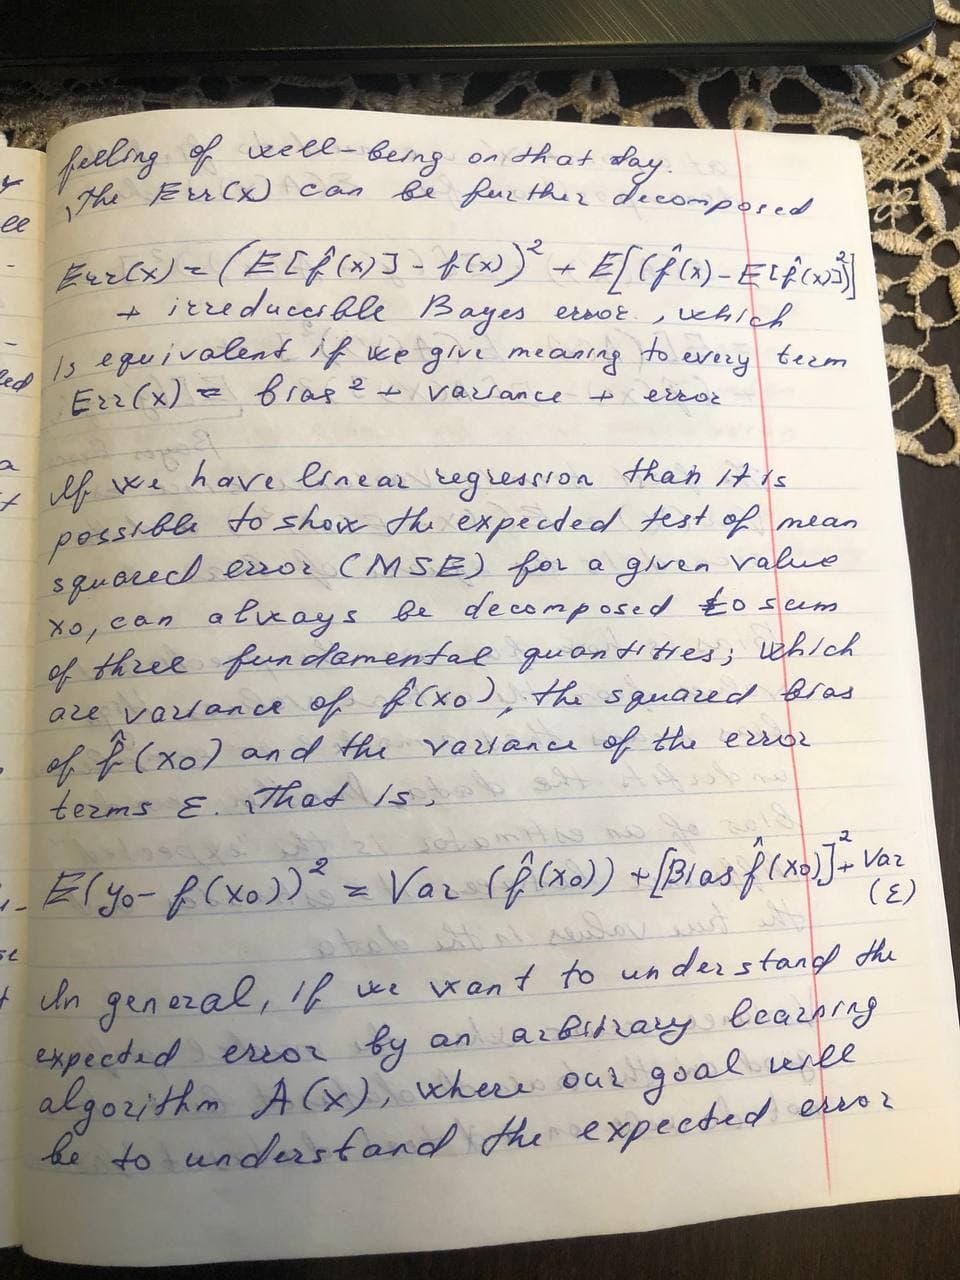 feeling of well-being on that day.
The Err(x) can be further decomposed
Err(x) = (E[f̂(x)] - f(x))² + E[(f̂(x) - E[f̂(x)])²]
+ irreducible Bayes error, which
is equivalent if we give meaning to every term
Err(x) = bias² + variance + error
If we have linear regression than it is
possible to show the expected test of mean
squared error (MSE) for a given value
x0, can always be decomposed to sum
of three fundamental quantities; which
are variance of f̂(x0), the squared bias
of f̂(x0) and the variance of the error
terms ε. That is,
E(y0 - f(x0))² = Var (f̂(x0)) + [Bias f̂(x0)]² + Var
(ε)
In general, if we want to understand the
expected error by an arbitrary learning
algorithm A(x), where our goal will
be to understand the expected error